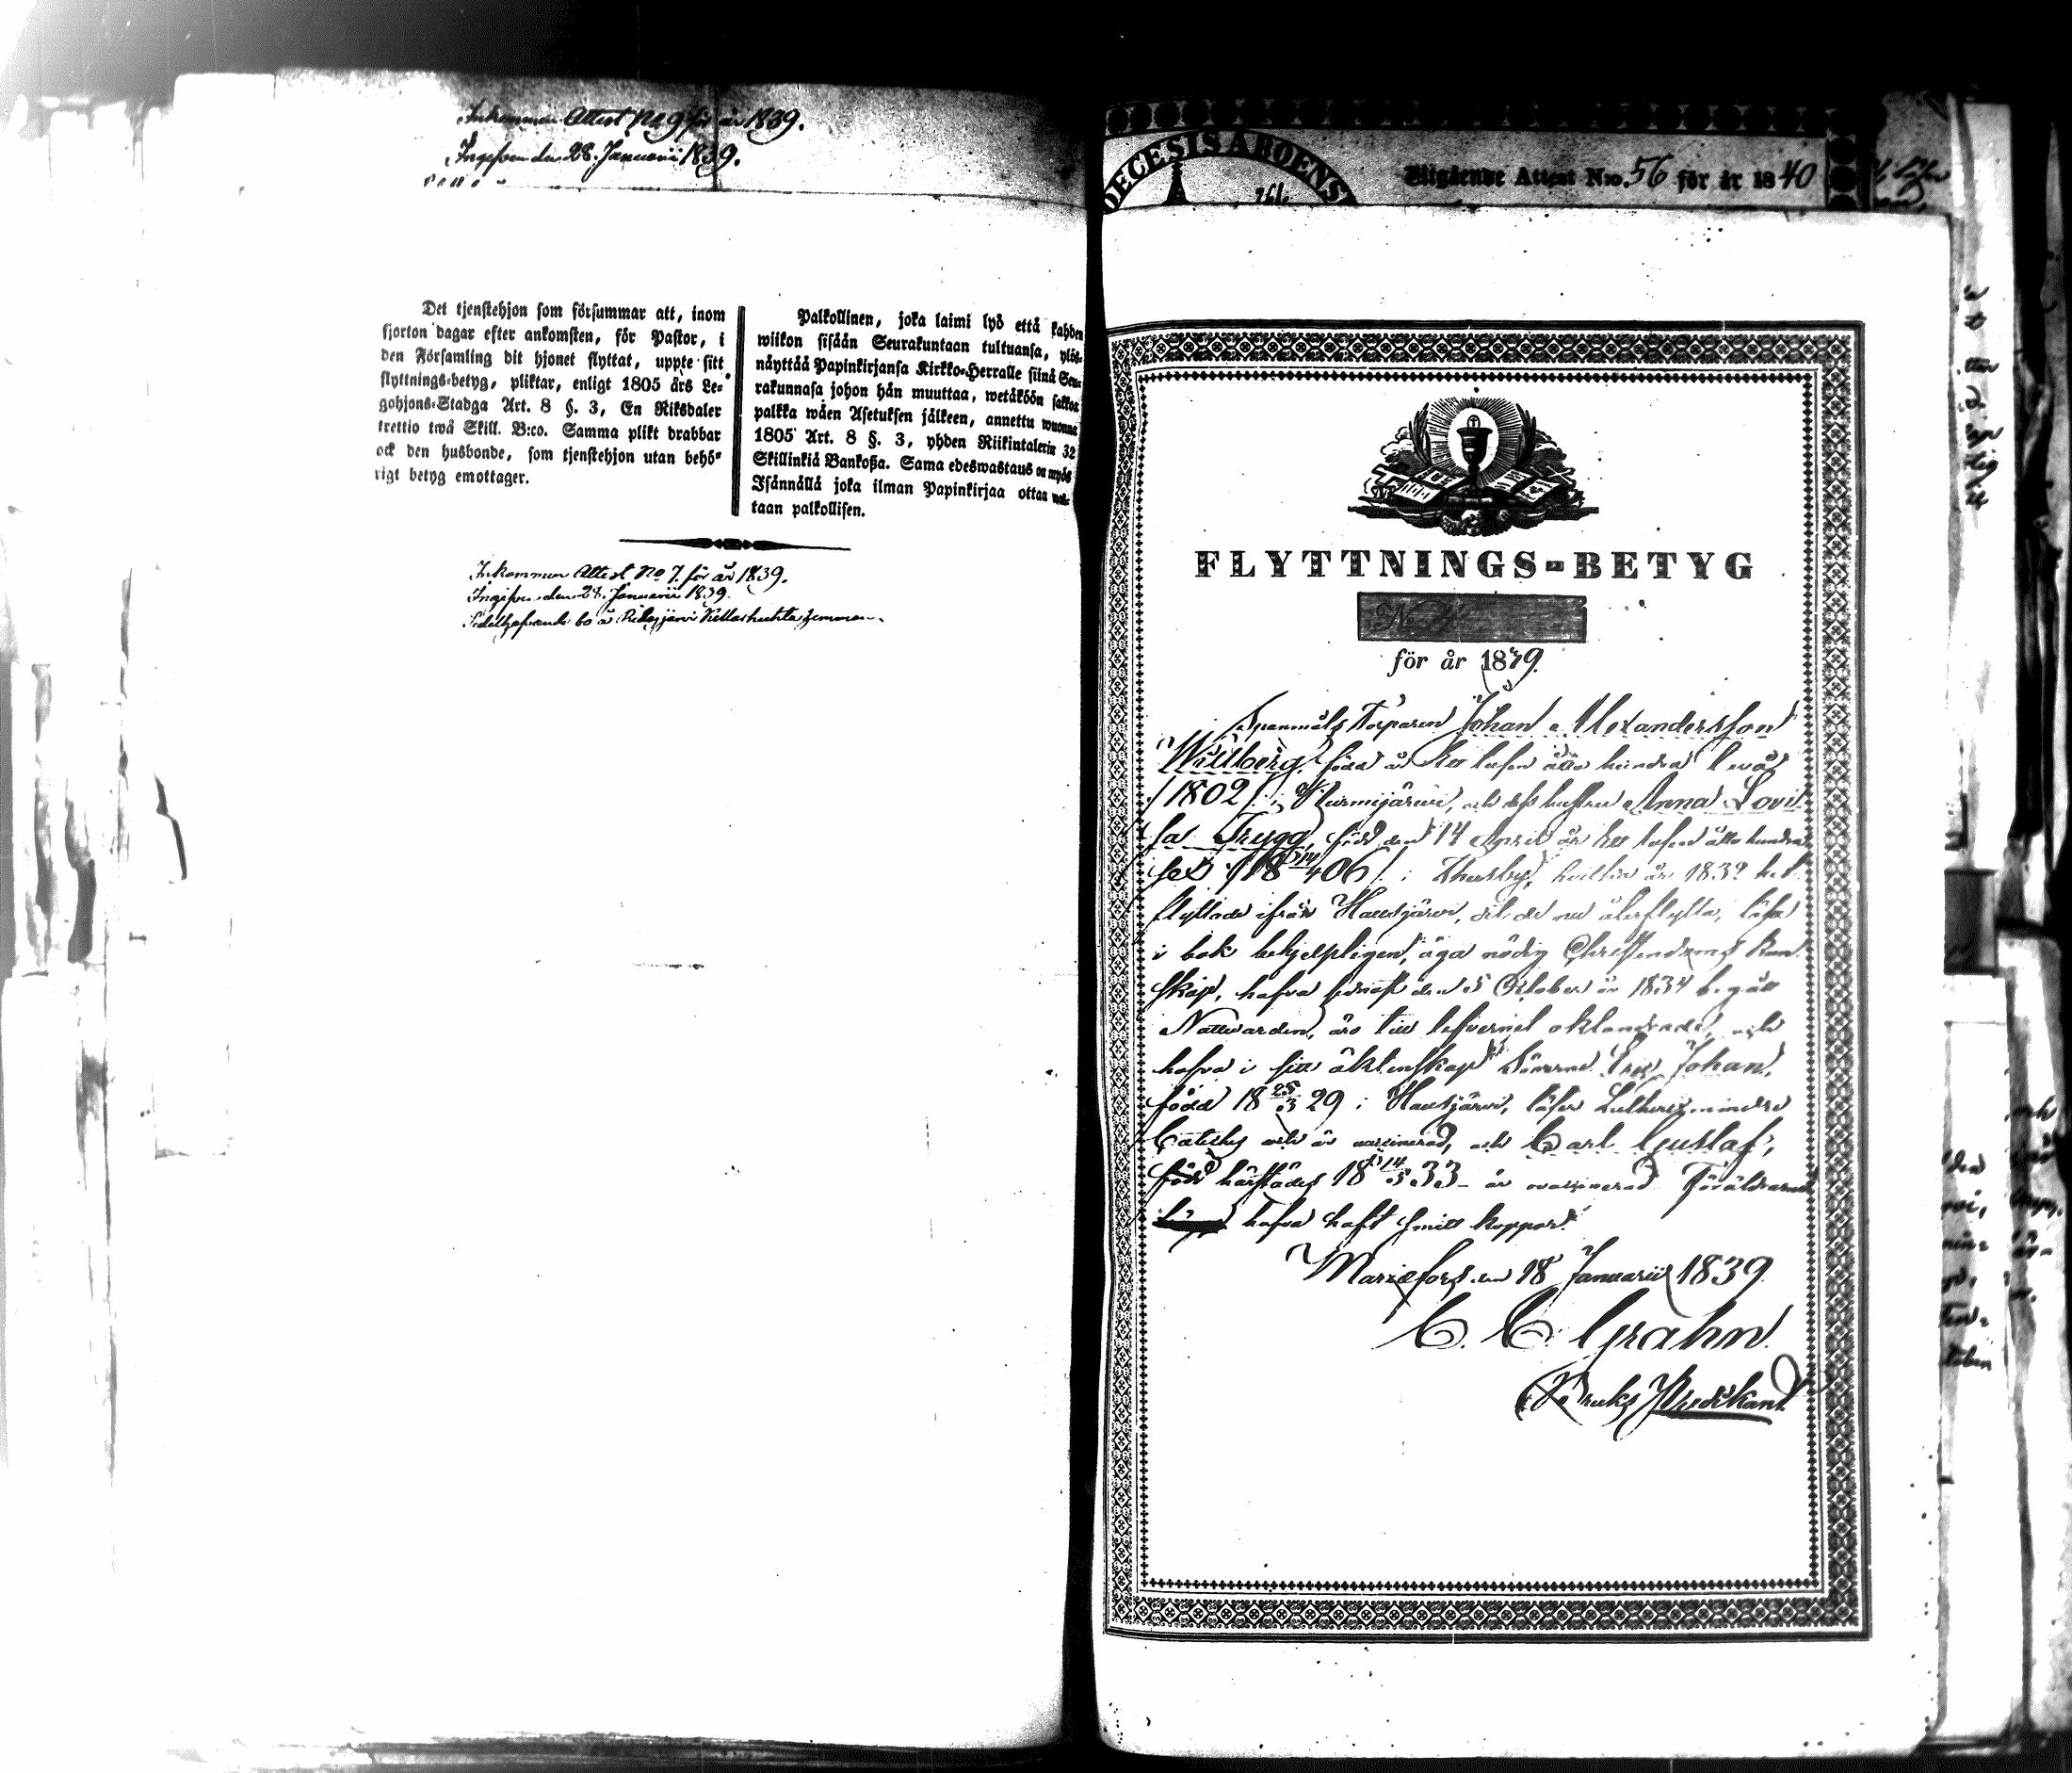 Inkommen Attest No 9 för år 1839.
Ingifven den 28. Januarii 1839.
Det tjenstehjon som försummar att, inom
fjorton dagar efter ankomsten, för Pastor, i
den Församling dit hjonet flyttat, uppte sitt
flyttnings-betyg, pliktar, enligt 1805 års Le-
gohjons-Stadga Art. 8 §. 3, En Riksdaler
trettio twå Skill. B:co. Samma plikt drabbar
ock den husbonde, som tjenstehjon utan behö-
rigt betyg emottager.
Palkollinen, joka laimi lyö että kahden
wiikon sisään Seurakuntaan tultuansa, ylös-
näyttää Papinkirjansa Kirkko-Herralle siinä Seu-
rakunnasa johon hän muuttaa, wetäköön sakkoa
palkka wäen Asetuksen jälkeen, annettu wuonna
1805 Art. 8 §. 3, yhden Riikintalerin 32
Skillinkiä Bankoßa. Sama edeswastaus on myös
Isännällä joka ilman Papinkirjaa ottaa
taan palkollisen.
Inkommen Attest No 7. för år 1839.
Ingifven den 28. Januarii 1839.
bo å
DECESIS ABOENS
Utgående Attest Nro. 56 för år 1840
FLYTTNINGS-BETYG
No
för år 1839.
Torparen Johan Alexandersson
född år Ett tusen åtta hundra två
/1802/ i Nurmijärvi, och dess hustru Anna Lovi
sa Trygg, född den 14 April år Ett tusen åtta hundra
sex /18 14/4 06/ i hvilka år 1832 hit
flyttade ifrån Hausjärvi, dit de nu återflytta, läsa
i bok behjelpligen, äga nödig Christendoms kun
skap, hafva sednast den 5 Oktober år 1834 begått
Nattvarden, äro till lefvernet oklandrade, och
hafva i sitt äktenskap Sönerne Johan,
född 18 25/3 29 i Hausjärvi, läser Lutheri mindre
Catechs och är vaccinerad, och Carl Gustaf,
född härstädes 18 14/5 33 är ovaccinerad Föräldrarne
hafva haft smitt koppor.
Mariefors den 18 Januarii 1839.
C. C. Grahn.
Bruks Predikant